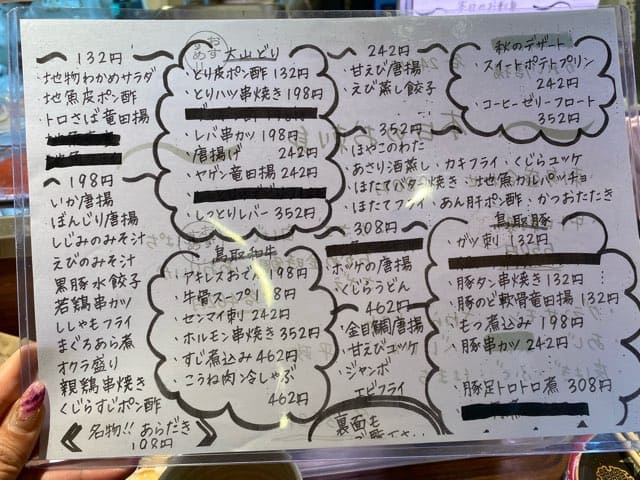 132円
・地物わかめサラダ
・地魚皮ポン酢
・トロさば竜田揚
198円
・いか唐揚
・ぼんじり唐揚
・しじみのみそ汁
・えびのみそ汁
・黒豚水餃子
・若鶏串カツ
・ししゃもフライ
・まぐろあら煮
・オクラ盛り
・親鶏串焼き
・くじらすじポン酢
名物!! あらだき
108円
おすすめ
大山どり
・とり皮ポン酢 132円
・とりハツ串焼き 198円
・レバ串カツ 198円
・唐揚げ 242円
・ヤゲン竜田揚 242円
・しっとりレバー 352円
鳥取和牛
・アキレスおでん 198円
・牛骨スープ 198円
・センマイ刺 242円
・ホルモン串焼き 352円
・すじ煮込み 462円
・こうね肉 冷しゃぶ
462円
242円
・甘えび唐揚
・えび蒸し餃子
352円
・ほやこのわた
・あさり酒蒸し・カキフライ・くじらユッケ
・ほたてバター焼き・地魚カルパッチョ
・ほたてフライ・あん肝ポン酢・かつおたたき
308円
・ホッケの唐揚
・くじらうどん
462円
・金目鯛唐揚
・甘えびユッケ
・ジャンボ
エビフライ
裏面も
秋のデザート
・スイートポテトプリン
242円
・コーヒーゼリーフロート
352円
鳥取豚
・ガツ刺 132円
・豚タン串焼き 132円
・豚のど軟骨竜田揚 132円
・もつ煮込み 198円
・豚串カツ 242円
・豚足トロトロ煮 308円